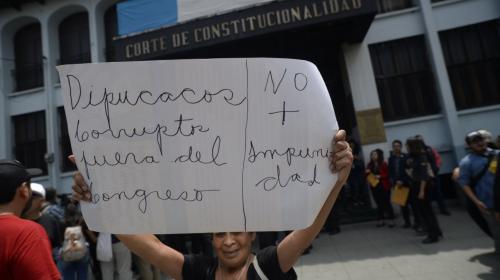 CORTE DE CONSTITUCIONALIDAD
Dipucacos
Corruptos
fuera del
Congreso
NO
+
Impuni
dad